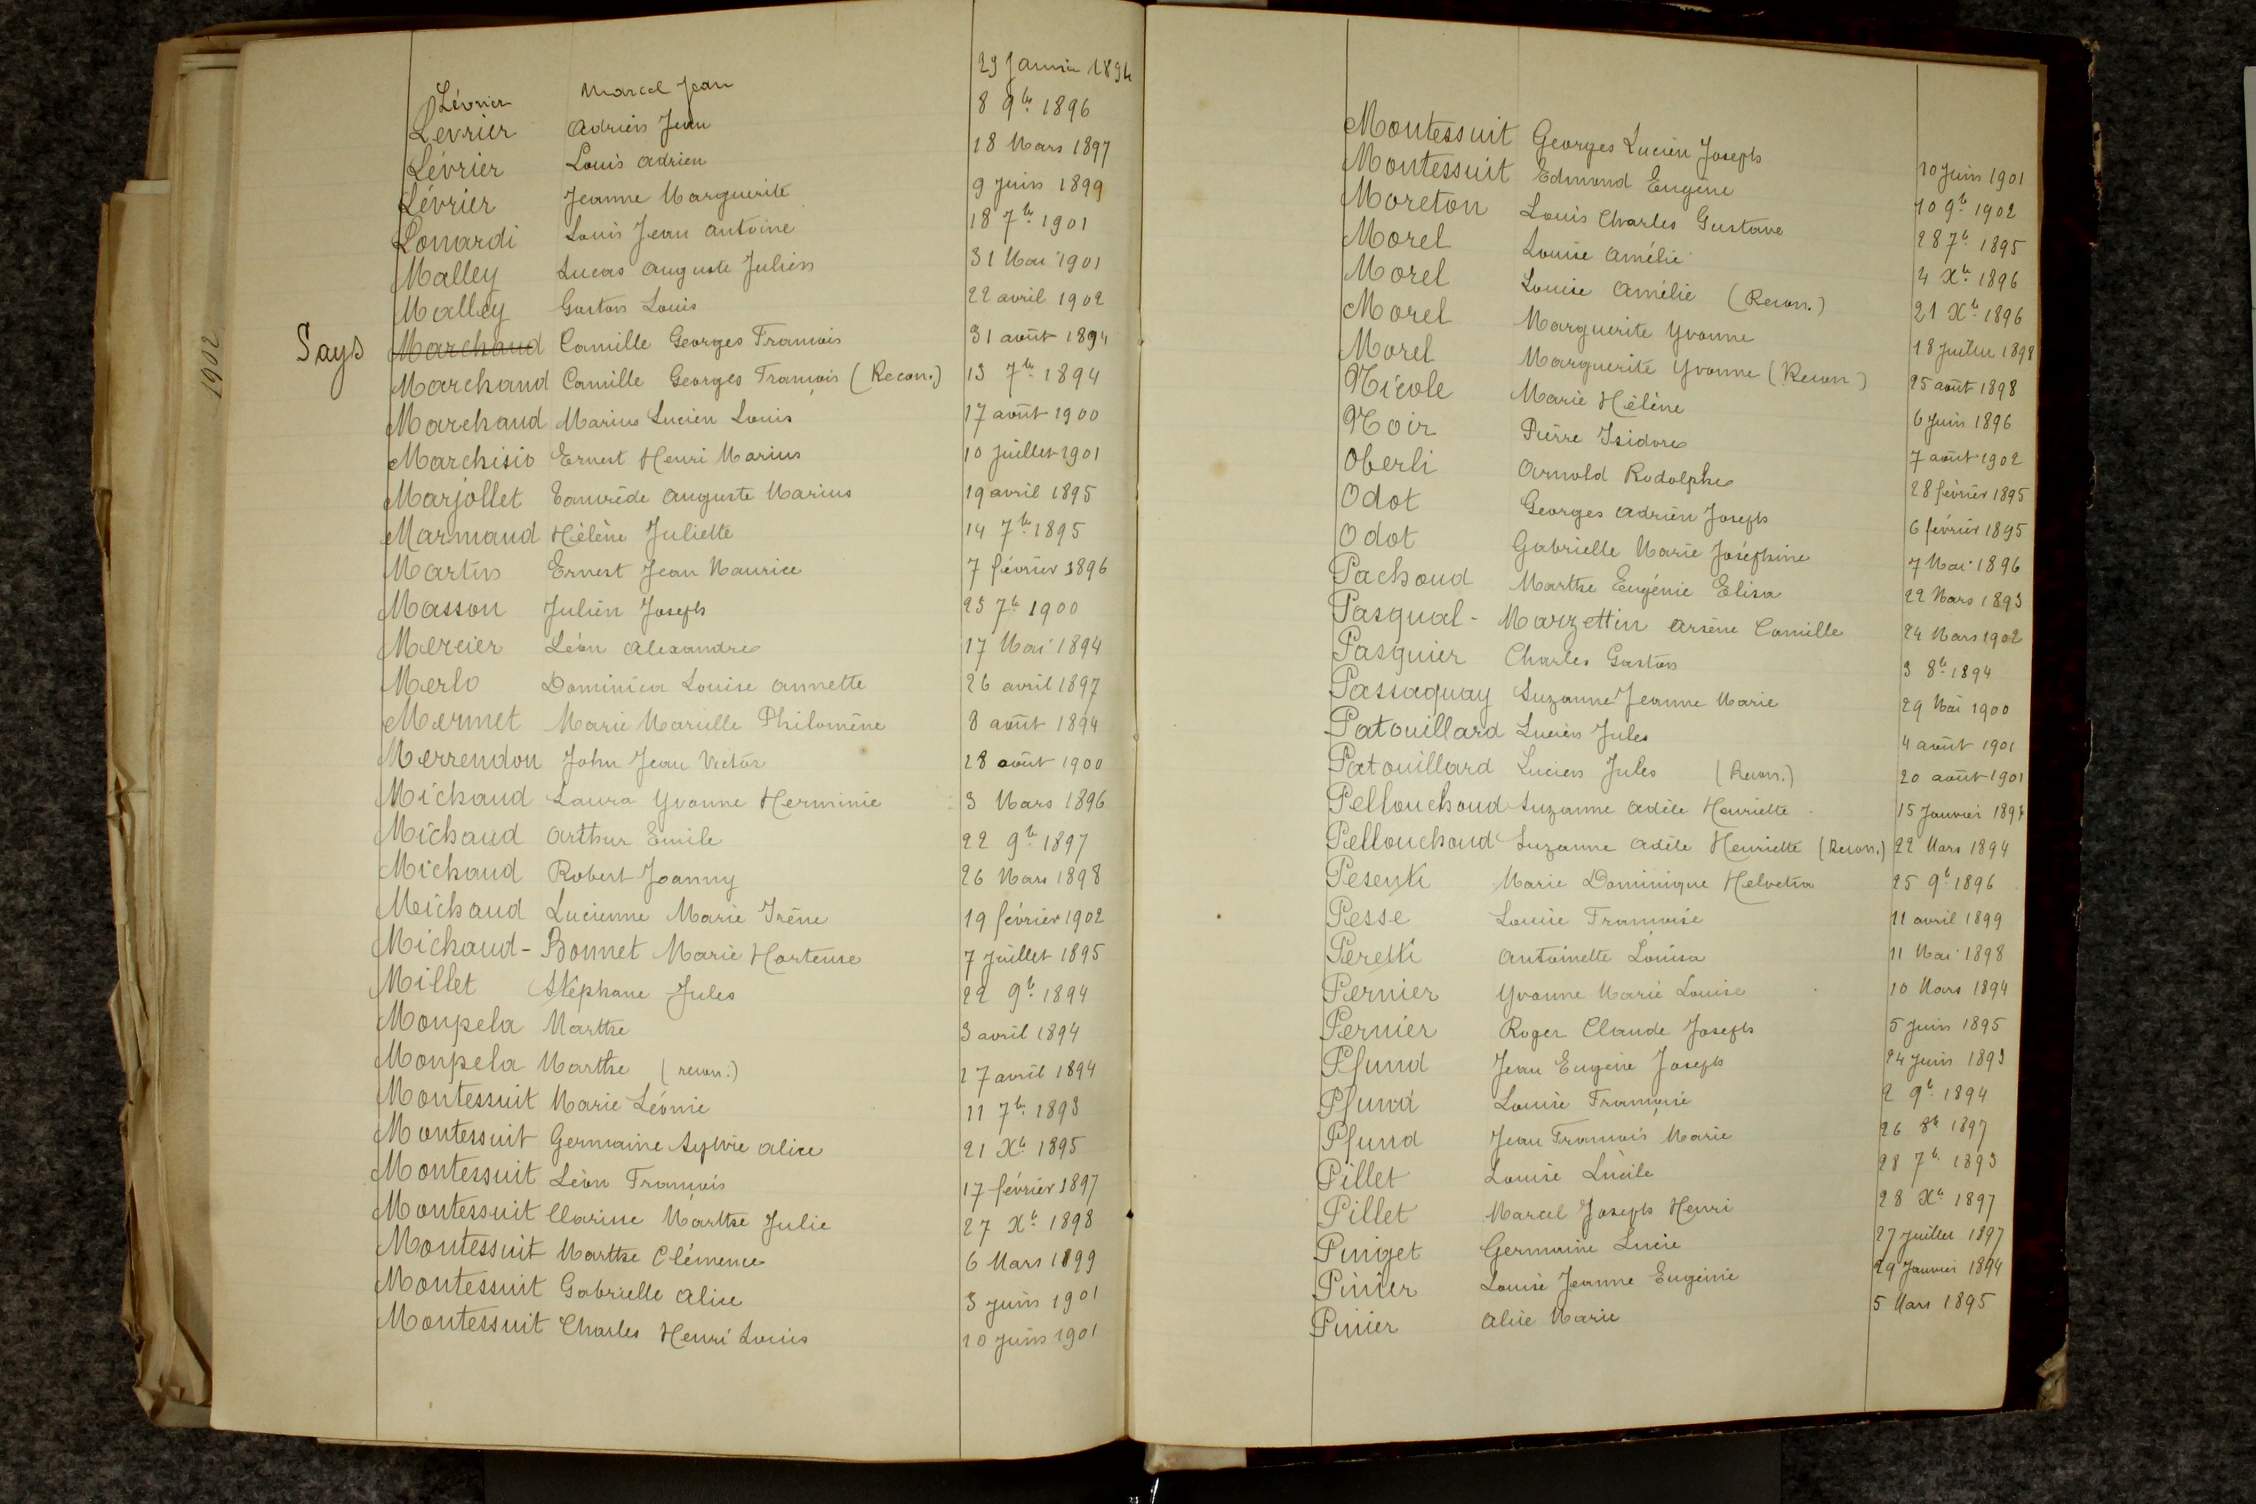 Lévrier Marcel Jean 29 Janvier 1894
Levrier Adrien Jean 8 9bre 1896
Lévrier Louis Adrien 18 Mars 1897
Lévrier Jeanne Marguerite 9 Juin 1899
Lonardi Louis Jean Antoine 18 7bre 1901
Malley Lucas Auguste Julien 31 Mai 1901
Malley Gaston Louis 22 avril 1902
Says Marchaud Camille Georges François 31 août 1894
Marchaud Camille Georges François (Recon.) 13 7bre 1894
Marchaud Marius Lucien Louis 17 août 1900
Marchisio Ernest Henri Marius 10 Juillet 1901
Marjollet Tancrède Auguste Marius 19 avril 1895
Marmaud Hélène Juliette 14 7bre 1895
Martin Ernest Jean Maurice 7 février 1896
Masson Julien Joseph 25 7bre 1900
Mercier Léon Alexandre 17 Mai 1894
Merlo Dominica Louise Annette 26 avril 1897
Mermet Marie Marielle Philomène 8 août 1894
Merrendon John Jean Victor 28 août 1900
Michaud Laura Yvonne Herminie 3 Mars 1896
Michaud Arthur Emile 22 9bre 1897
Michaud Robert Joanny 26 Mars 1898
Michaud Lucienne Marie Irène 19 février 1902
Michaud-Bonnet Marie Hortense 7 Juillet 1895
Millet Stéphane Jules 22 9bre 1894
Monpela Marthe 3 avril 1894
Monpela Marthe (recon.) 27 avril 1894
Montessuit Marie Léonie 11 7bre 1893
Montessuit Germaine Sylvie Alice 21 Xbre 1895
Montessuit Léon François 17 février 1897
Montessuit Clarisse Marthe Julie 27 Xbre 1898
Montessuit Marthe Clémence 6 Mars 1899
Montessuit Gabrielle Alice 3 Juin 1901
Montessuit Charles Henri Louis 10 Juin 1901
1902
Montessuit Georges Lucien Joseph 10 Juin 1901
Montessuit Edmond Eugène 10 9bre 1902
Moreton Louis Charles Gustave 28 7bre 1895
Morel Louise Amélie 4 Xbre 1896
Morel Louise Amélie (Recon.) 21 Xbre 1896
Morel Marguerite Yvonne 18 Juillet 1898
Morel Marguerite Yvonne (Recon) 25 août 1898
Nicole Marie Hélène 6 Juin 1896
Noir Pierre Isidore 7 août 1902
Oberli Arnold Rodolphe 28 février 1895
Odot Georges Adrien Joseph 6 février 1895
Odot Gabrielle Marie Joséphine 7 Mai 1896
Pachoud Marthe Eugénie Elisa 22 Mars 1893
Pasqual-Marzettin Arsène Camille 24 Mars 1902
Pasquier Charles Gaston 3 8bre 1894
Passaquay Suzanne Jeanne Marie 29 Mai 1900
Patouillard Lucien Jules 4 août 1901
Patouillard Lucien Jules (Recon.) 20 août 1901
Pellouchoud Suzanne Adèle Henriette 15 Janvier 1894
Pellouchoud Suzanne Adèle Henriette (Recon.) 22 Mars 1894
Pesenti Marie Dominique Helvetia 25 9bre 1896
Pesse Louise Françoise 11 avril 1899
Peretti Antoinette Louisa 11 Mai 1898
Pernier Yvonne Marie Louise 10 Mars 1894
Pernier Roger Claude Joseph 5 Juin 1895
Pfund Jean Eugène Joseph 24 Juin 1893
Pfund Louise Françoise 2 9bre 1894
Pfund Jean François Marie 26 8bre 1897
Pillet Louise Lucile 28 7bre 1893
Pillet Marcel Joseph Henri 28 Xbre 1897
Pinget Germaine Lucie 27 Juillet 1897
Pinier Louise Jeanne Eugénie 29 Janvier 1894
Pinier Alice Marie 5 Mars 1895